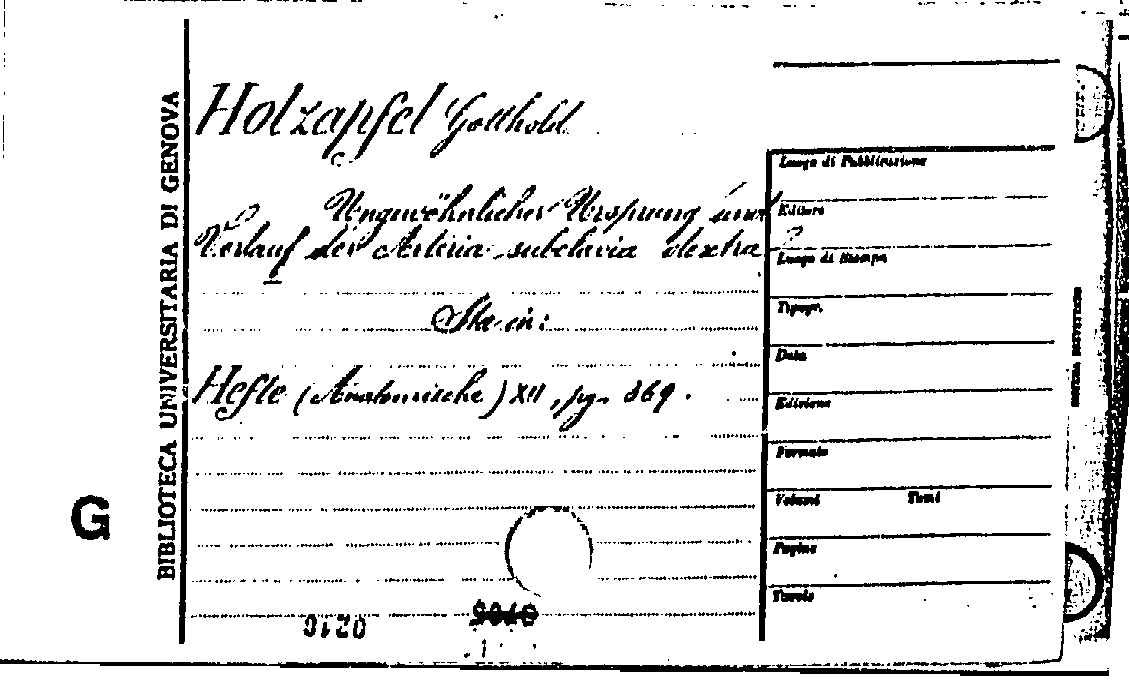 BIBLIOTECA UNIVERSITARIA DI GENOVA
G
Holzapfel Gotthold
Ungewöhnlicher Ursprung und
Verlauf der Arteria subclavia dextra
Sta in:
Hefte (Anatomische) XII, pg. 369.
Luogo di Pubblicazione
Editore
Luogo di Stampa
Tipogr.
Data
Edizione
Formato
Volumi Tomi
Pagine
Tavole